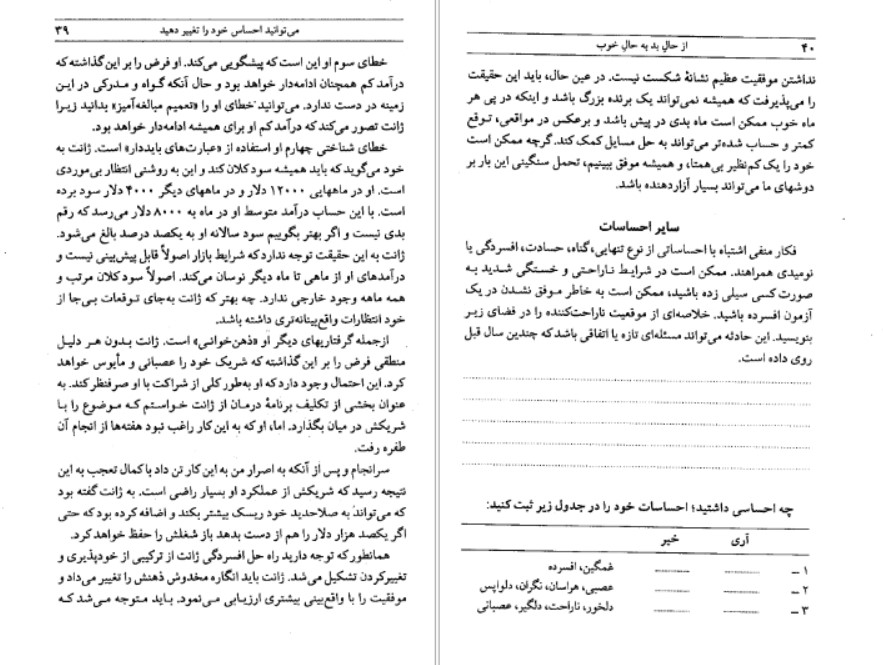 می‌توانید احساس خود را تغییر دهید ۳۹
خطای سوم او این است که پیشگویی می‌کند. او فرض را بر این گذاشته که
درآمد کم همچنان ادامه‌دار خواهد بود و حال آنکه گواه و مدرکی در این
زمینه در دست ندارد. می‌توانید خطای او را «تعمیم مبالغه‌آمیز» بدانید زیرا
ژانت تصور می‌کند که درآمد کم او برای همیشه ادامه‌دار خواهد بود.
خطای شناختی چهارم او استفاده از «عبارت‌های بایددار» است. ژانت به
خود می‌گوید که باید همیشه سود کلان کند و این به روشنی انتظار بی‌موردی
است. او در ماههایی ۱۲۰۰۰ دلار و در ماههای دیگر ۴۰۰۰ دلار سود برده
است. با این حساب درآمد متوسط او در ماه به ۸۰۰۰ دلار می‌رسد که رقم
بدی نیست و اگر بهتر بگوییم سود سالانه او به یکصد درصد بالغ می‌شود.
ژانت به این حقیقت توجه ندارد که شرایط بازار اصولاً قابل پیش‌بینی نیست و
درآمدهای او از ماهی تا ماه دیگر نوسان می‌کند. اصولاً سود کلان مرتب و
همه ماهه وجود خارجی ندارد. چه بهتر که ژانت به‌جای توقعات بی‌جا از
خود انتظارات واقع‌بینانه‌تری داشته باشد.
ازجمله گرفتاریهای دیگر او «ذهن‌خوانی» است. ژانت بدون هر دلیل
منطقی فرض را بر این گذاشته که شریک خود را عصبانی و مأیوس خواهد
کرد. این احتمال وجود دارد که او به‌طور کلی از شراکت با او صرفنظر کند. به
عنوان بخشی از تکلیف برنامهٔ درمان از ژانت خواستم که موضوع را با
شریکش در میان بگذارد. اما، او که به این کار راغب نبود هفته‌ها از انجام آن
طفره رفت.
سرانجام و پس از آنکه به اصرار من به این کار تن داد با کمال تعجب به این
نتیجه رسید که شریکش از عملکرد او بسیار راضی است. به ژانت گفته بود
که می‌تواند به صلاحدید خود ریسک بیشتر بکند و اضافه کرده بود که حتی
اگر یکصد هزار دلار را هم از دست بدهد باز شغلش را حفظ خواهد کرد.
همانطور که توجه دارید راه حل افسردگی ژانت از ترکیبی از خودپذیری و
تغییرکردن تشکیل می‌شد. ژانت باید انگاره مخدوش ذهنش را تغییر می‌داد و
موفقیت را با واقع‌بینی بیشتری ارزیابی می‌نمود. باید متوجه می‌شد که
۴۰ از حال بد به حال خوب
نداشتن موفقیت عظیم نشانهٔ شکست نیست. در عین حال، باید این حقیقت
را می‌پذیرفت که همیشه نمی‌تواند یک برنده بزرگ باشد و اینکه در پی هر
ماه خوب ممکن است ماه بدی در پیش باشد و برعکس در مواقعی، توقع
کمتر و حساب شده‌تر می‌تواند به حل مسایل کمک کند. گرچه ممکن است
خود را یک کم‌نظیر بی‌همتا، و همیشه موفق ببینیم، تحمل سنگینی این بار بر
دوشهای ما می‌تواند بسیار آزاردهنده باشد.
سایر احساسات
فکار منفی اشتباه با احساساتی از نوع تنهایی، گناه، حسادت، افسردگی یا
نومیدی همراهند. ممکن است در شرایط ناراحتی و خستگی شدید به
صورت کسی سیلی زده باشید، ممکن است به خاطر موفق نشدن در یک
آزمون افسرده باشید. خلاصه‌ای از موقعیت ناراحت‌کننده را در فضای زیر
بنویسید. این حادثه می‌تواند مسئله‌ای تازه یا اتفاقی باشد که چندین سال قبل
روی داده است.
چه احساسی داشتید؛ احساسات خود را در جدول زیر ثبت کنید:
آری خیر
۱ – غمگین، افسرده
۲ – عصبی، هراسان، نگران، دلواپس
۳ – دلخور، ناراحت، دلگیر، عصبانی